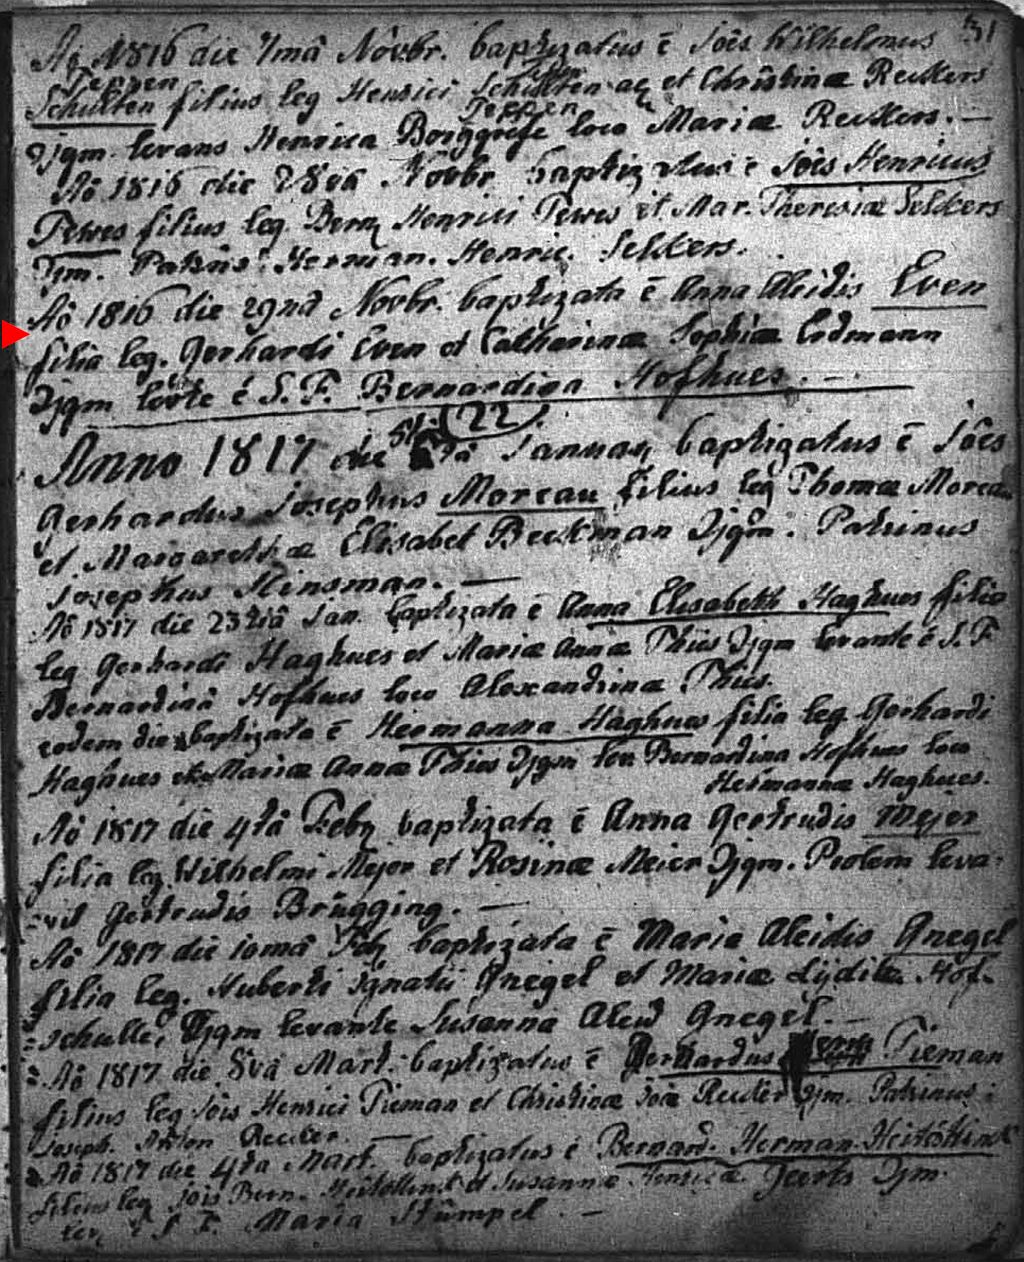 31
Aô 1816 die 7mâ Novbr. baptizatus ē Joês Wilhelmus
Teppen
Schulten filius leg Henrici Schulten et Christinæ Reckers
Teppen
Djgm. levans Henrica Borggrefe loco Mariæ Reckers. —
Aô 1816 die 28vâ Novbr baptizatus ē Joês Henricus
Tewes filius leg Bern Henrici Tewes et Mar. Theresiæ Selkers
Djm. Patrins Herman. Henric. Selkers.
Aô 1816 die 29nâ Novbr. baptizata ē Anna Aleidis Even
filia leg. Gerhardi Even et Catharinæ Sophiæ Erdmann
Djgm levte ē S. F. Bernardina Hofhues. —
22
Anno 1817 die Januar baptizatus ē Joês
Gerhardus Josephus Moreau filius leg Thomæ Moreau
et Margarethæ Elisabet Beckman Djgm. Patrinus
Josephus Kinsman. —
Aô 1817 die 23tiâ Jan. baptizata ē Anna Elisabeth Haghues filia
leg Gerhardi Haghues et Mariæ Annæ Thius Djgm levante ē S. F
Bernardinâ Hofhues loco Alexandrinæ Thius.
eodem die baptizata ē Hermanna Haghues filia leg Gerhardi
Haghues et Mariæ Annæ Thius Djgm lev Bernardina Hofhues loco
Hermannæ Haghues.
Aô 1817 die 4tâ Febr baptizata ē Anna Gertrudis Mejer
filia leg. Wilhelmi Mejer et Rosinæ Meier Djgm. Prolem leva-
-vit Gertrudis Brügging. —
Aô 1817 die 10mâ Feb baptizata ē Maria Aleidis Gnegel
filia leg. Huberti Ignatii Gnegel et Mariæ Lydiæ Hof-
=schulte, Djgm levante Susanna Aleid Gnegel. —
Aô 1817 die 8vâ Mart. baptizatus ē Bernardus Tieman
filius leg Jois Henrici Tieman et Christinæ Joæ Recker Djm. Patrinus :
Joseph. Anton Recker. —
Aô 1817 die 4ta Mart. baptizatus ē Bernard. Herman
filius leg Jois Bern. et Susannæ Henricæ Geerts Djm.
lev ē S F. Maria Stümpel. —